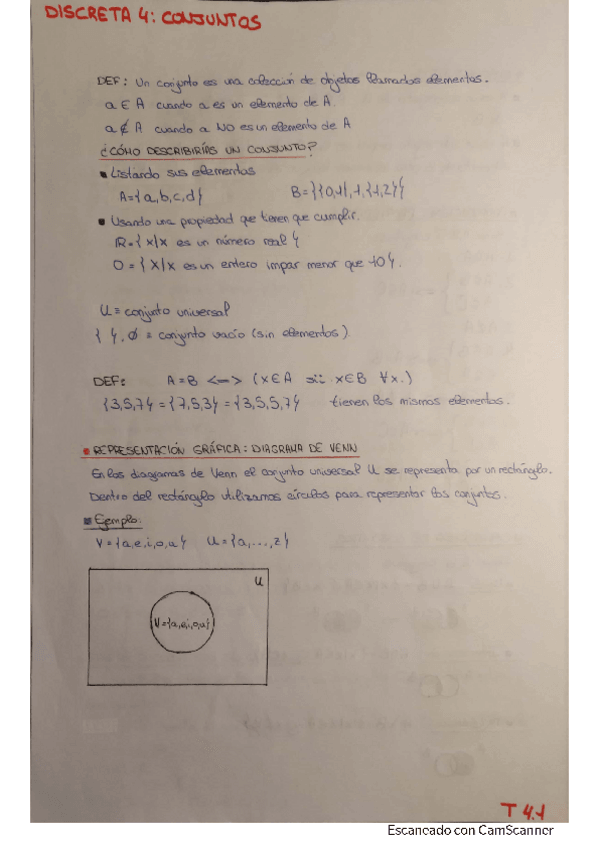 DISCRETA 4: CONJUNTOS
DEF: Un conjunto es una colección de objetos llamados elementos.
a ∈ A cuando a es un elemento de A.
a ∉ A cuando a NO es un elemento de A
¿CÓMO DESCRIBIRÍAS UN CONJUNTO?
Listando sus elementos
A={a,b,c,d} B={{0,1},1,{1,2}}
Usando una propiedad que tienen que cumplir.
R={x/x es un número real}
O={x/x es un entero impar menor que 10}.
U = conjunto universal
{ }, ∅ = conjunto vacío (sin elementos)
DEF: A=B <=> (x∈A sii x∈B ∀x.)
{3,5,7}={7,5,3}={3,5,5,7} tienen los mismos elementos.
REPRESENTACIÓN GRÁFICA: DIAGRAMA DE VENN
En los diagramas de Venn el conjunto universal U se representa por un rectángulo.
Dentro del rectángulo utilizamos círculos para representar los conjuntos.
Ejemplo:
V={a,e,i,o,u} U={a,...,z}
U
V={a,e,i,o,u}
T 4.1
Escaneado con CamScanner